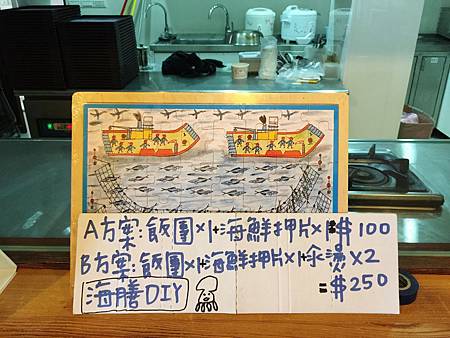 A方案:飯團×1+海鮮押片×1=$100
B方案:飯團×1+海鮮押片×1+氽燙×2
=$250
海膳DIY